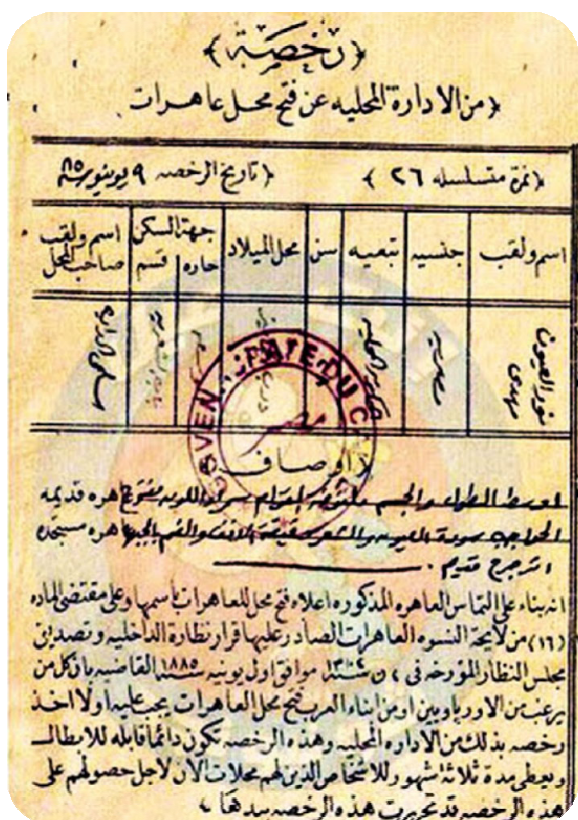 ﴿رخصة﴾
﴿من الادارة المحليه عن فتح محل عاهرات
﴿نمرة متسلسله ٢٦﴾ ﴿تاريخ الرخصه ٩ يونيو سنة ٨٥
اسم ولقب جنسيه تبعيه سن محل الميلاد جهة السكن حاره قسم اسم ولقب صاحب المحل
نور العيون مهدى مصريه الحكومه المحليه
مصر
﴿اوصاف
متوسط الطول والجسم اللون عاهره قديمه
الحواجب العيون والشعر الانف والفم
انه بناء على التماس العاهره المذكوره اعلاه فتح محل للعاهرات باسمها وعلى مقتضى الماده
(١٦) من لايحة النسوه العاهرات الصادر عليها قرار نظارة الداخليه وتصديق
مجلس النظار المؤرخه فى موافق اول يونيه سنة ١٨٨٥ القاضيه بان كل من
يرغب من الاورباويين او من ابناء العرب فتح محل العاهرات يجب عليه اولا اخذ
رخصه بذلك من الاداره المحليه وهذه الرخصه تكون دائما قابله للابطال
ويعطى مدة ثلاثة اشهور للاشخاص الذين لهم محلات الان لاجل حصولهم على
هذه الرخصه قد تحررت هذه الرخصه بيدها